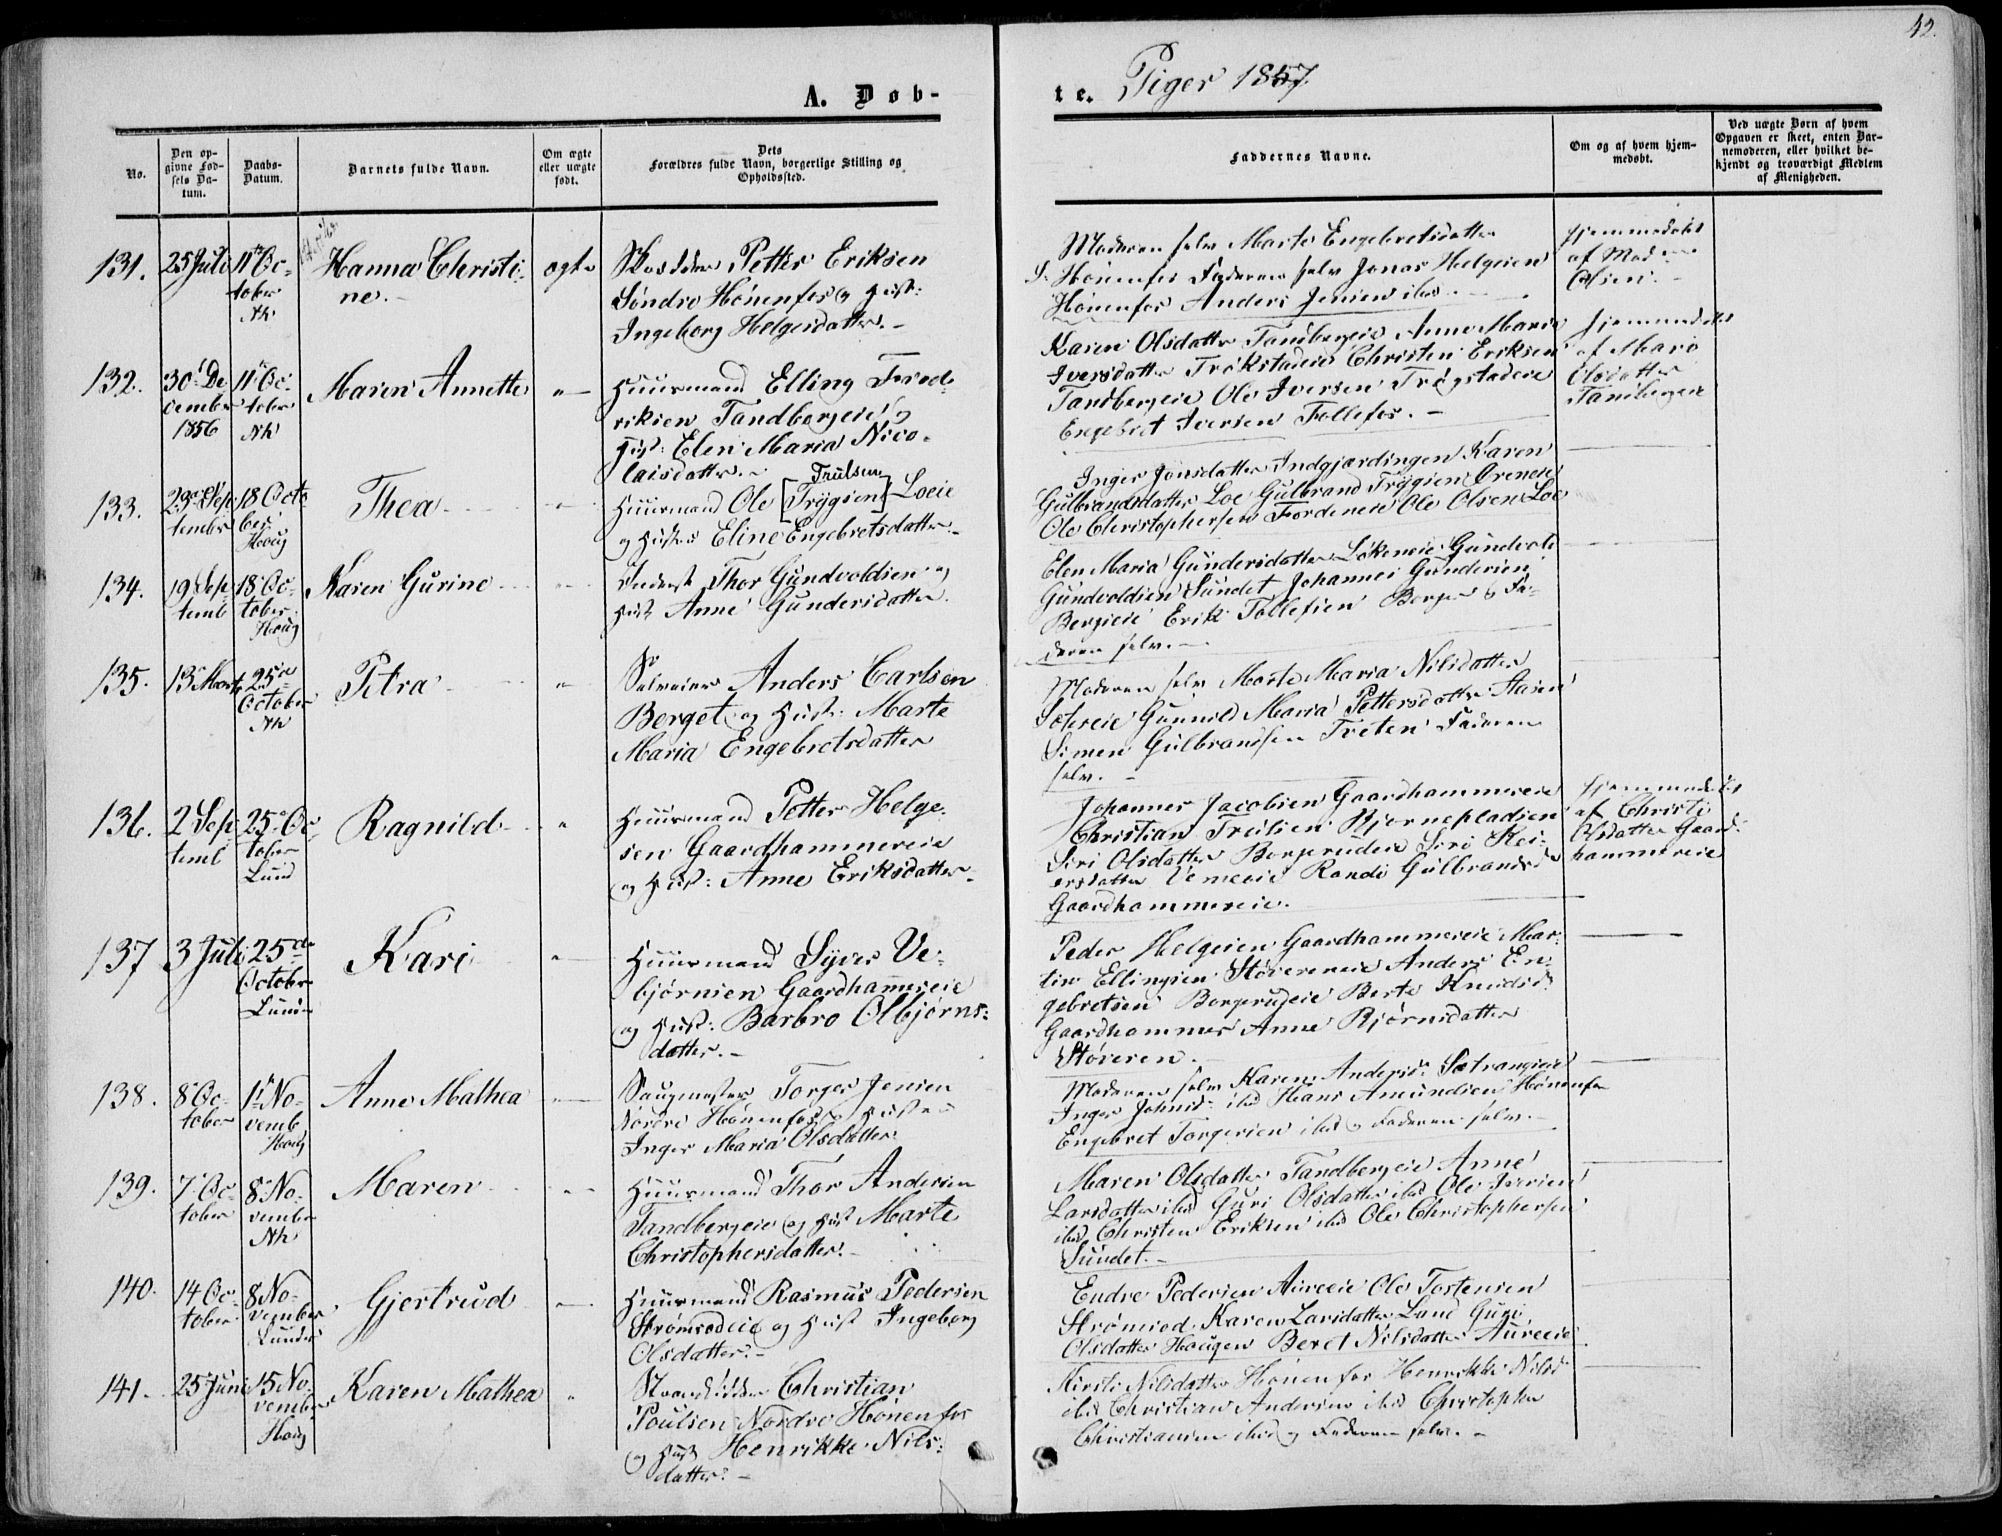 42.
A. Døb-
te. Piger 1857.
No.
Den op-
givne Fød-
sels Da-
tum.
Daabs-
Datum.
Barnets fulde Navn.
Om ægte
eller uægte
født.
Dets
Forældres fulde Navn, borgerlige Stilling og
Opholdssted.
Faddernes Navne.
Om og af hvem hjem-
medøbt.
Ved uægte Børn af hvem
Opgaven er skeet, enten Bar-
nemoderen, eller hvilket be-
kjendt og troværdigt Medlem
af Menigheden.
131.
25 Juli
11 Oc-
tober
Nh
Hanna Christi-
ne.-
ægte
Petter Eriksen
Søndre Hønenfos og Hust:
Ingeborg Helgesdatter.-
Moderen selv Marte Engebretsdatter
S. Hønenfos Faderen selv Jonas Helgesen
Hønenfos Anders Jensen ibid.-
Hjemmedøbt
af Mad
Olsen.-
132.
30 De
cember
1856
11 Oc-
tober
Nh
Maren Annette
"
Huusmand Elling Fred-
riksen Tandbergeie og
Hust: Elen Maria Nico-
laisdatter.-
Karen Olsdatter Tandbergeie Anne Marie
Iversdatter Trøkstadeie Christen Eriksen
Tandbergeie Ole Iversen Trøgstadeie
Engebret Iversen Follefos.-
Hjemmedøbt
af Mari
Olsdatter
Tandbergeie
133.
23 Sep
tember
18 Octo
ber
Houg
Thea
"
Trulsen
Huusmand Ole [Trygsen] Loeie
og Hustru Eline Engebretsdatter.-
Inger Jonsdatter Indgjærdingen Karen
Gulbrandsdatter Loe Gulbrand Trygsen Øreneie
Ole Christophersen Fordeneie Ole Olsen Loe
134.
19 Sep
temb
18 Oc-
tober
Houg
Karen Gurine
"
Inderst Thor Gundvoldsen og
Hust Anne Gundersdatter.
Elen Maria Gundersdatter Løkeneie Gundvold
Gundvoldsen Sundet Johannes Gundersen
Bergseie Erik Tollefsen Berger og Fa-
deren selv.-
135.
13 Marts
25de
October
Nh
Petra
"
Selveier Anders Carlsen
Berget og Hust: Marte
Maria Engebretsdatter
Moderen selv Marte Maria Nilsdatter
Gunnild Maria Pettersdatter Aasen
Simen Gulbrandsen Treten Faderen
selv.-
136.
2 Sep
temb
25 Oc-
tober
Lund
Ragnild
"
Huusmand Petter Helge-
sen Gaardhammereie
og Hust: Anne Eriksdatter.
Johannes Jacobsen Gaardhammereie
Christian Troilsen Bjørnepladsen
Siri Olsdatter Borgerudeie Siri Rei-
ersdatter Vemeeie Randi Gulbrandsd
Gaardhammereie.
Hjemmedøbt
af Christi
Olsdatter Gaard-
hammereie
137
3 Juli
25de
October
Lunde
Kari
"
Huusmand Syver Ve-
bjørnsen Gaardhammereie
og Hust: Barbro Olbjørns-
datter.-
Peder Helgesen Gaardhammereie Mar-
tin Ellingsen Støvereneie Anders En-
gebretsen Borgerudeie Berte Knudsd.
Gaardhammer Anne Bjørnsdatter
Støveren.
138.
8 Oc-
tober
1 No-
vemb
Houg
Anne Mathea
"
Saugmester Torger Jensen
Nordre Hønenfos og Hustru
Inger Maria Olsdatter.
Moderen selv Karen Andersd. Sætrangeie
Inger Johnsd. ibid Hans Amundsen Hønenfos
Engebret Torgersen ibid og Faderen selv.-
139.
7 Oc-
tober
8 No-
vember
Nh
Maren
"
Huusmand Thor Andersen
Tandbergeie og Hust Marte
Christophersdatter.-
Maren Olsdatter Tandbergeie Anne
Larsdatter ibid Guri Olsdatter ibid Ole Iversen
ibid Christen Eriksen ibid Ole Christophersen
Sundet.-
140.
14 Oc-
tober
8 No-
vember
Lunder
Gjertrud
"
Huusmand Rasmus Pedersen
Strømsodeie og Hust Ingeborg
Olsdatter.-
Endre Pedersen Aureeie Ole Tostensen
Strømsod Karen Larsdatter Lund Guri
Olsdatter Haugen Beret Nilsdatter Aureeie
141.
25 Juni
15 No-
vember
Houg
Karen Mathea
"
Strandsidder Christian
Poulsen Nordre Hønenfos
og Hust Henrikke Nils-
datter.-
Kirsti Nilsdatter Hønenfos Henrikke Nilsd
ibid Christian Andersen ibid Christopher
Christiansen ibid og Faderen selv.-